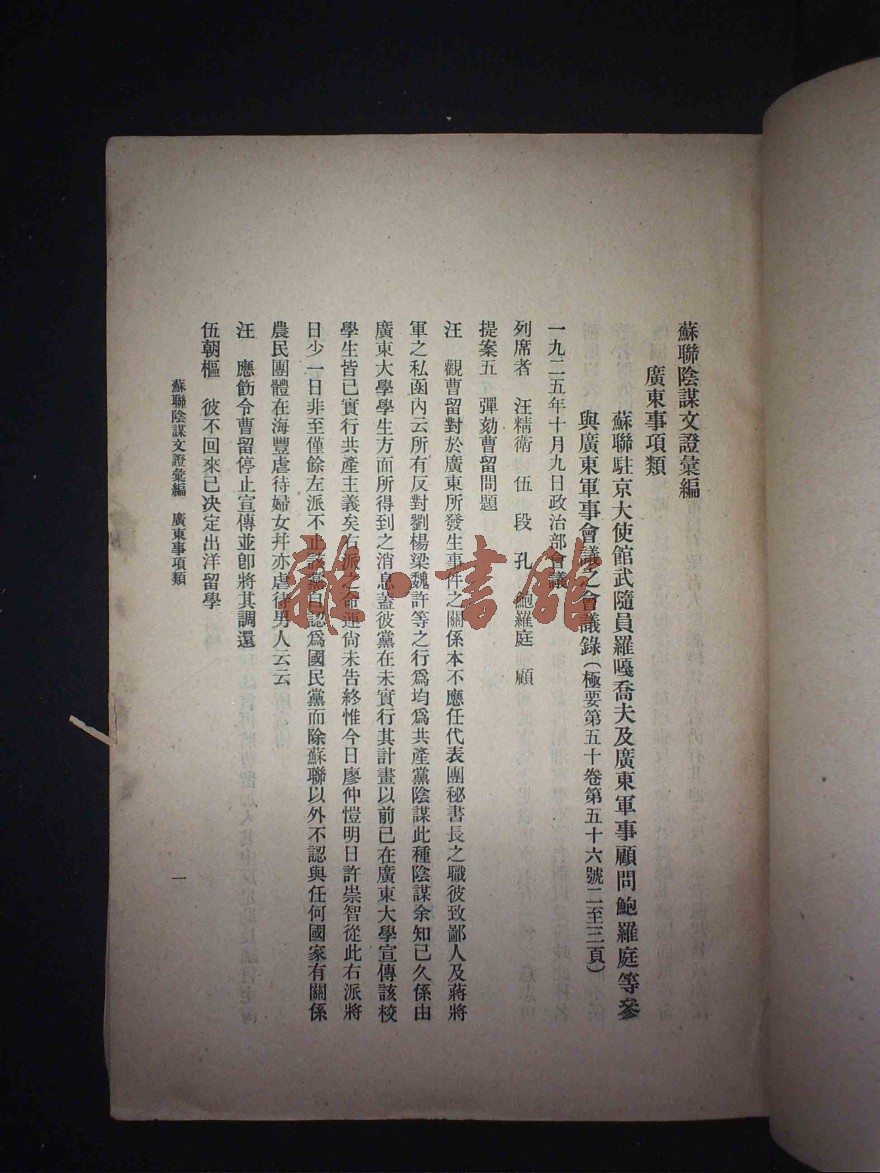 蘇聯陰謀文證彙編
廣東事項類
蘇聯駐京大使館武隨員羅嘎喬夫及廣東軍事顧問鮑羅庭等參
與廣東軍事會議之會議錄（極要第五十卷第五十六號二至三頁）
一九二五年十月九日政治部會議
列席者　汪精衛　伍　段　孔　鮑羅庭　顧
提案五　彈劾曹留問題
汪　觀曹留對於廣東所發生事件之關係本不應任代表團秘書長之職彼致鄙人及蔣將
軍之私函內云所有反對劉楊梁魏許等之行爲均爲共產黨陰謀此種陰謀余知已久係由
廣東大學學生方面所得到之消息蓋彼黨在未實行其計畫以前已在廣東大學宣傳該校
學生皆已實行共產主義矣右派之命運尙未告終惟今日廖仲愷明日許崇智從此右派將
日少一日非至僅餘左派不止該黨自認爲國民黨而除蘇聯以外不認與任何國家有關係
農民團體在海豐虐待婦女幷亦虐待男人云云
汪　應飭令曹留停止宣傳並卽將其調還
伍朝樞　彼不回來已决定出洋留學
蘇聯陰謀文證彙編　廣東事項類
一
雜·書館